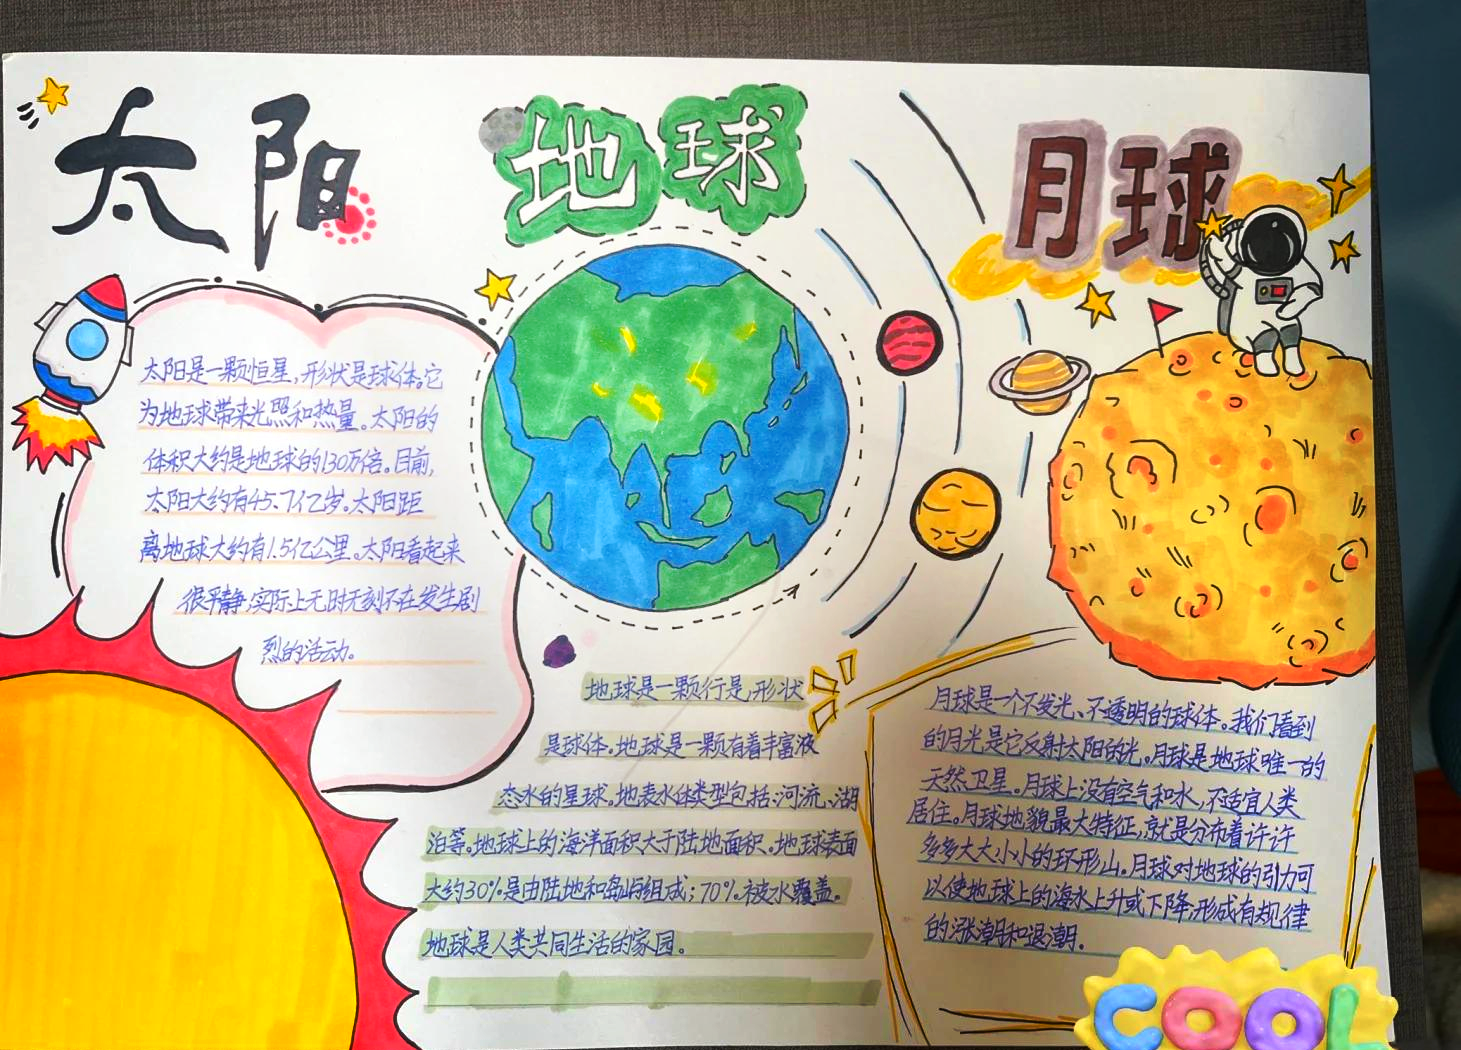 太阳
地球
月球
太阳是一颗恒星,形状是球体。它
为地球带来光照和热量。太阳的
体积大约是地球的130万倍。目前,
太阳大约有45.7亿岁。太阳距
离地球大约有1.5亿公里。太阳看起来
很平静,实际上无时无刻不在发生剧
烈的活动。
地球是一颗行是,形状
是球体。地球是一颗有着丰富液
态水的星球。地表水体类型包括:河流、湖
泊等。地球上的海洋面积大于陆地面积。地球表面
大约30%是由陆地和岛屿组成;70%被水覆盖。
地球是人类共同生活的家园。
月球是一个不发光、不透明的球体。我们看到
的月光是它反射太阳的光。月球是地球唯一的
天然卫星。月球上没有空气和水,不适宜人类
居住。月球地貌最大特征,就是分布着许许
多多大大小小的环形山。月球对地球的引力可
以使地球上的海水上升或下降,形成有规律
的涨潮和退潮。
COOL